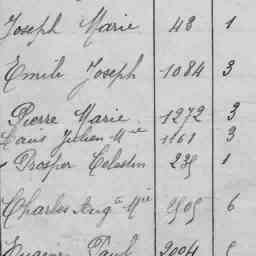 Joseph Marie 48 1
Emile Joseph 1084 3
Pierre Marie 1272 3
Louis Julien M ie 1161 3
Prosper Celestin 235 1
Charles Aug te M ie 2505 6
Eugene Paul 2004